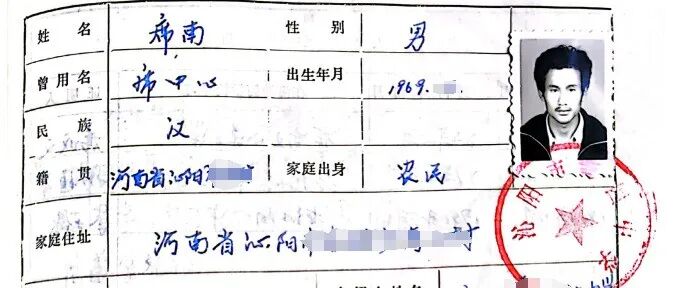 姓名 席南 性别 男
曾用名 席中心 出生年月 1969.
民族 汉
籍贯 河南省沁阳 家庭出身 农民
家庭住址 河南省沁阳 村
沁阳